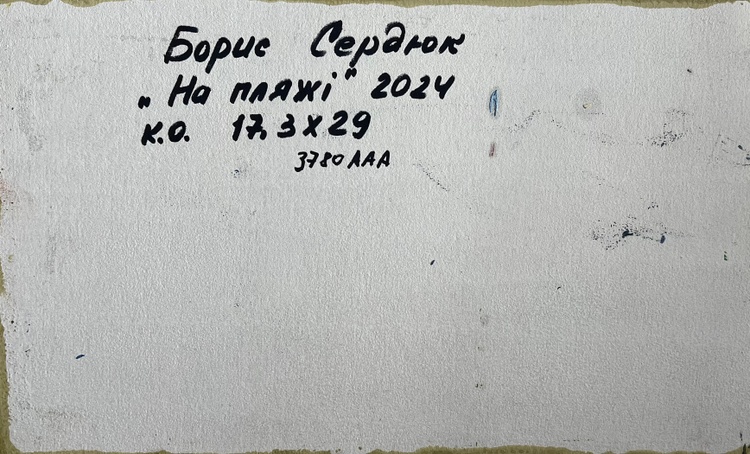 Борис Сердюк
„На пляжі" 2024
к.о. 17,3 х 29
3780 ААА